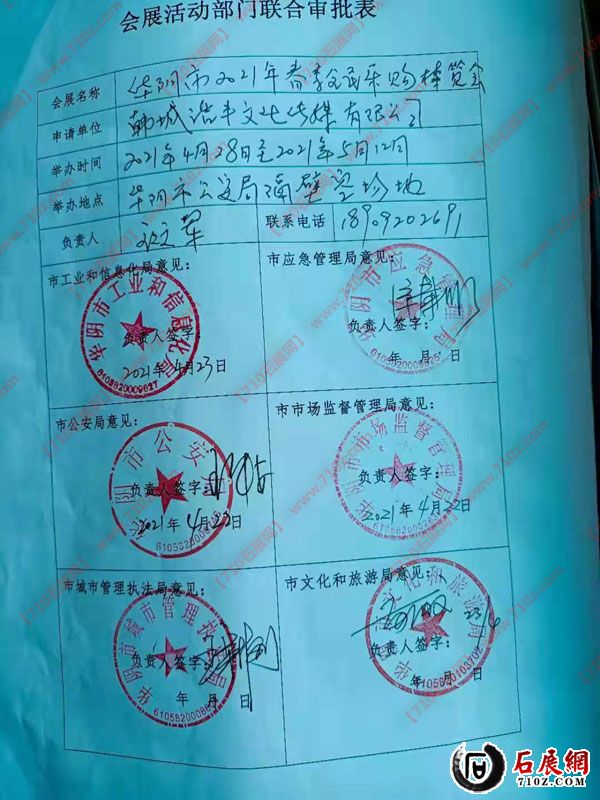 会展活动部门联合审批表
会展名称 华阴市2021年春季全民采购博览会
申请单位 韩城浩丰文化传媒有限公司
举办时间 2021年4月28日至2021年5月12日
举办地点 华阴市公安局隔壁空场地
负责人 联系电话 18909202691
市工业和信息化局意见:
华阴市工业和信息化局
负责人签字
2021年4月23日
6105820009627
市应急管理局意见:
华阴市应急管理局
负责人签字:
年 月 日
市公安局意见:
华阴市公安局
负责人签字:
2021年4月22日
市市场监督管理局意见:
华阴市市场监督管理局
负责人签字:
2021年4月22日
市城市管理执法局意见:
华阴市城市管理执法局
负责人签字:
年 月 日
市文化和旅游局意见:
华阴市文化和旅游局
负责人签字:
年 月 日
6105820103702
【710石展网】 www.710z.com
石展網
710Z.COM